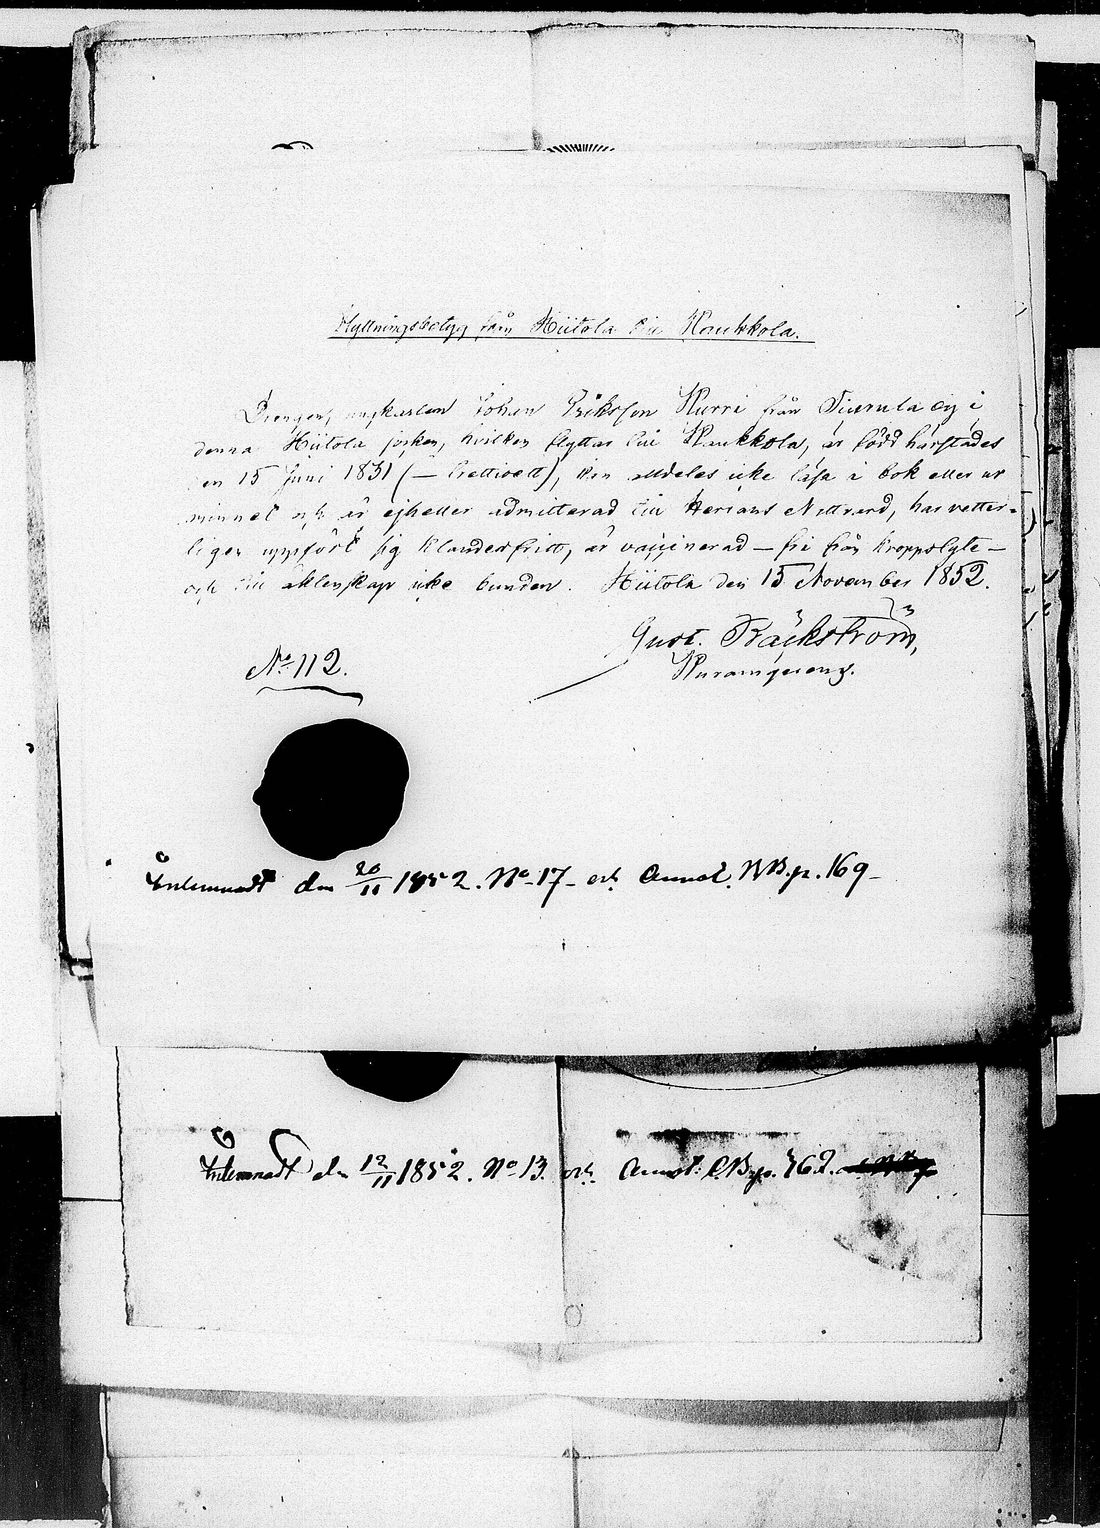 Flyttningsbetyg från Hiitola till Kaukkola.
Drengen, ungkarlen Johan Eriksson Hurri från Tiurula by i
denna Hiitola socken, hvilken flyttar till Kaukkola, är född härstädes
den 15 Juni 1831 (– trettioett), kan alldeles icke läsa i bok eller ur
minnet och är ejheller admitterad till Herrans Nattvard, har vetter-
ligen uppfört sig klanderfritt, är vaccinerad – fri från kroppslyte –
och till äktenskap icke bunden. Hiitola den 15 November 1852.
Gust. Bäckström,
No 112.
Inlemnadt den 20/11 1852. No 17 – och Annot. NB. p. 169 –
Inlemnadt den 12/11 1852. No 13. och Annot. CB. p. 762.